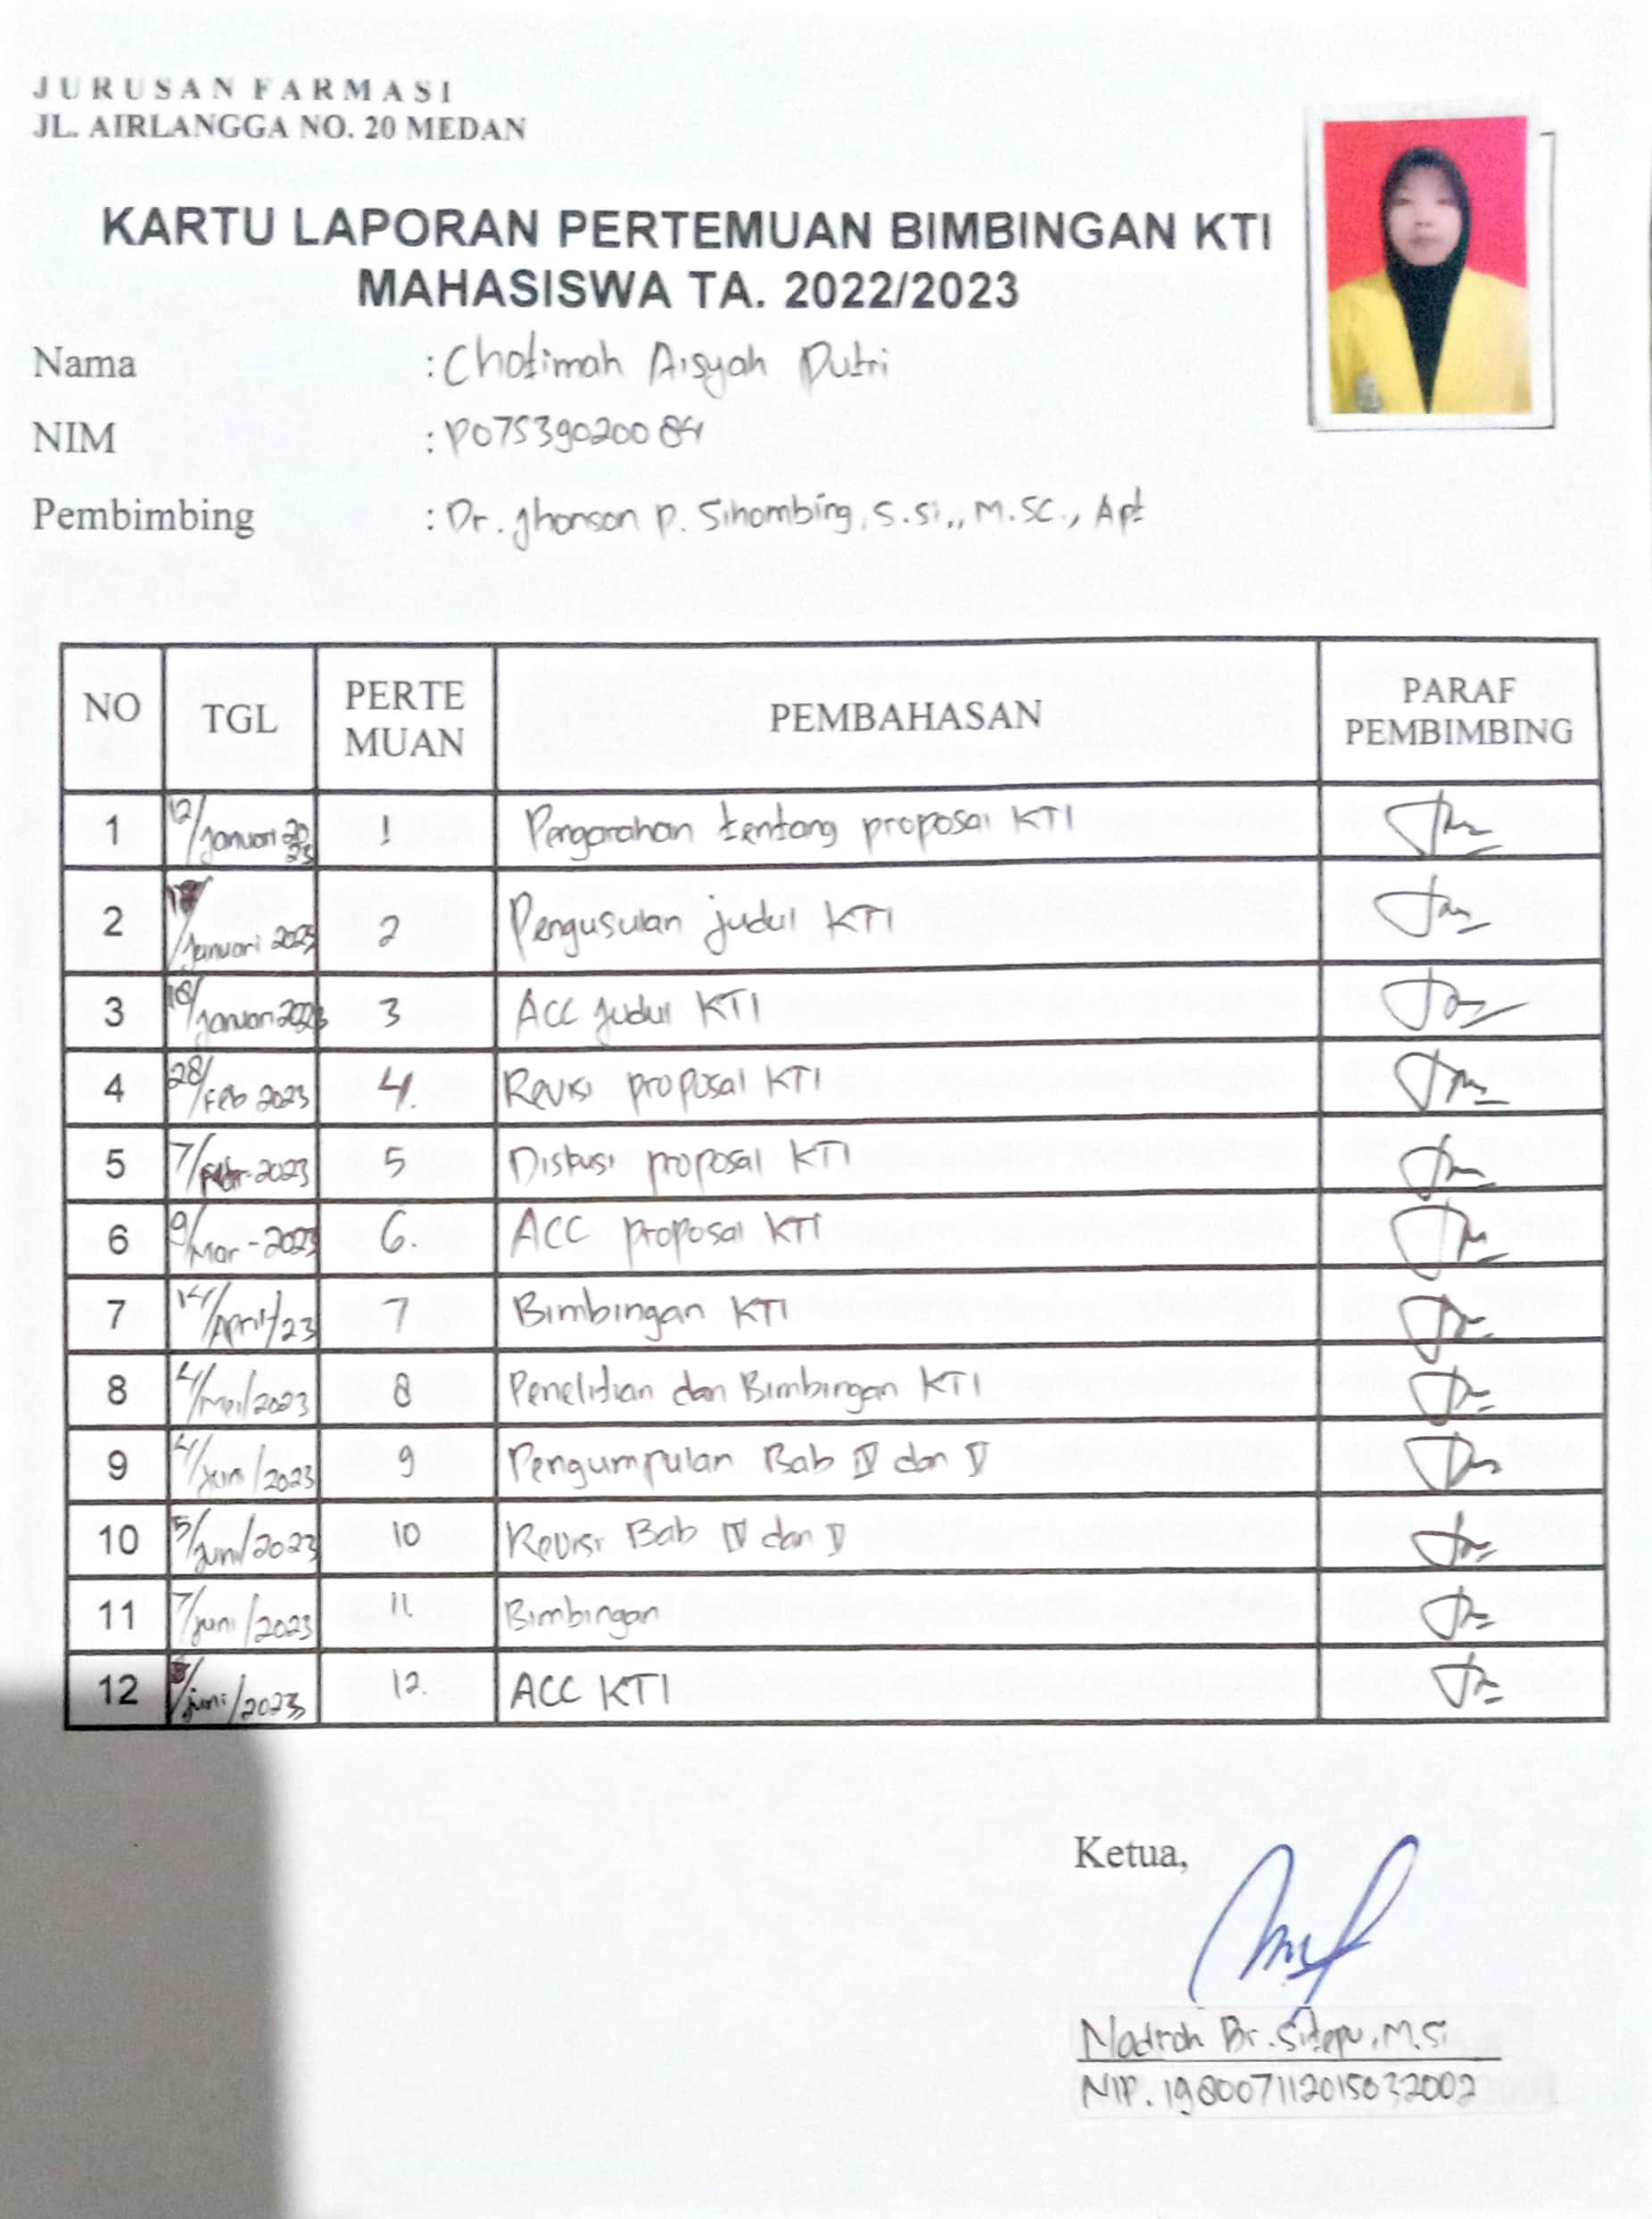 JURUSAN FARMASI
JL. AIRLANGGA NO. 20 MEDAN
KARTU LAPORAN PERTEMUAN BIMBINGAN KTI
MAHASISWA TA. 2022/2023
Nama : Chotimah Aisyah Putri
NIM : P07539020084
Pembimbing : Dr. Jhonson P. Sihombing, S.Si., M.SC., Apt
NO TGL PERTE MUAN PEMBAHASAN PARAF PEMBIMBING
1 12/Januari 2023 1 Pengarahan tentang proposal KTI
2 /Januari 2023 2 Pengusulan judul KTI
3 18/Januari 2023 3 ACC judul KTI
4 28/Feb 2023 4. Revisi proposal KTI
5 7/ -2023 5 Diskusi proposal KTI
6 9/Mar-2023 6. ACC proposal KTI
7 14/April/23 7 Bimbingan KTI
8 4/Mei/2023 8 Penelitian dan Bimbingan KTI
9 4/Juni/2023 9 Pengumpulan Bab IV dan V
10 5/Juni/2023 10 Revisi Bab IV dan V
11 7/juni/2023 11. Bimbingan
12 /juni/2023 12. ACC KTI
Ketua,
Nadroh Br. Sitepu, M.Si
NIP. 198007112015032002